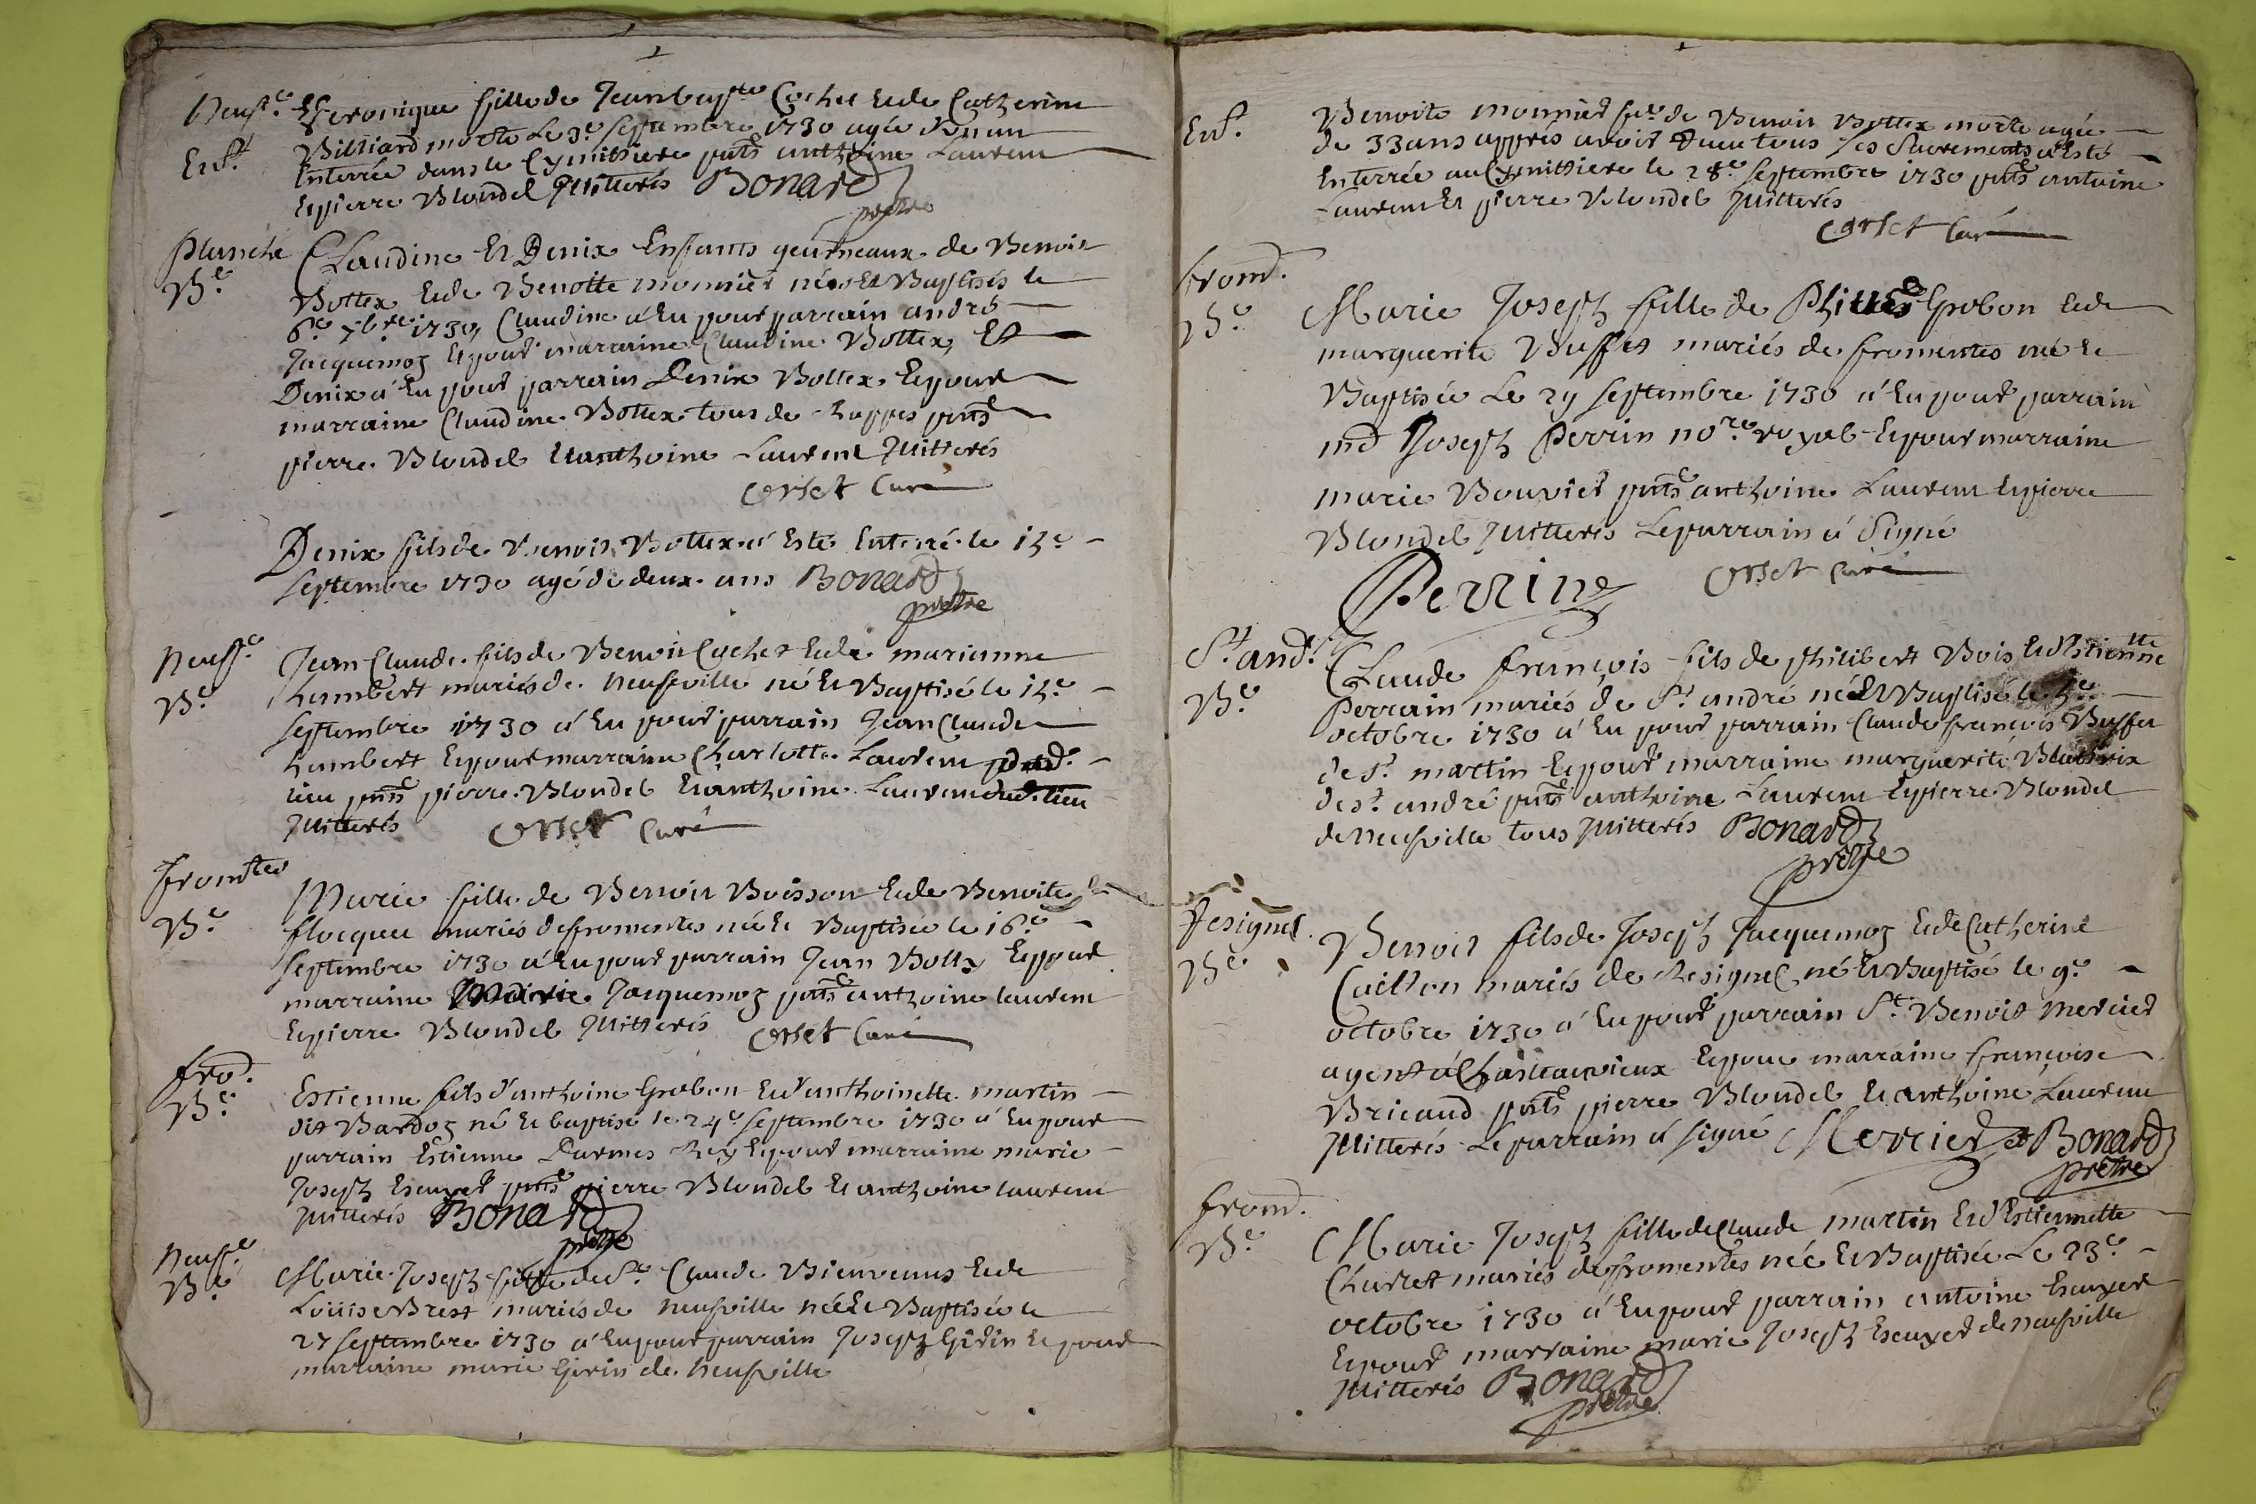 Neufe. Veronique fille de Jean bapte Cochet et de Catherine
Ent. Billiard morte Le 3e septembre 1730 agée d'un an
Enterrée dans le Cymithiere pnts anthoine Laurent
et pierre Blondel Illitterés Bonard
prêtre
planche Claudine Et Denix Enfants geumeaux de Benoit
Be Bottex et de Benoite monnier nés et Baptisés le
6e 7bre 1730, Claudine a eu pour parrain andré
Jacquemoz et pour marraine Claudine Bottex, Et
Denix a eu pour parrain Denix Bottex et pour
marraine Claudine Bottex tous de pnts
pierre Blondel et anthoine Laurent Illitterés
Orset Curé
Denix fils de Benoit Bottex a Esté Enterré le 15e
septembre 1730 agé de deux ans Bonard
prêtre
Neufe. Jean Claude fils de Benoit Cochet et de marianne
Be humbert mariés de Neufville né et Baptisé le 15e
septembre 1730 a eu pour parrain Jean Claude
humbert et pour marraine Charlotte Laurent dud.
lieu pnts pierre Blondel et anthoine Laurent dud. lieu
Illitterés Orset Curé
fromtes
Marie fille de Benoit Boisson et de Benoite
Be flocquet mariés de fromentes née et Baptisée le 16e
septembre 1730 a eu pour parrain Jean Bottex et pour
marraine Marie Jacquemoz pnts anthoine laurent
et pierre Blondel Illitterés Orset Curé
fro.
Be Estienne fils d'anthoine Grobon et d'anthoinette martin
dit Bardoz né et baptisé le 24e septembre 1730 a eu pour
parrain Estienne Darmes et pour marraine marie
Joseph Escuyer pnts pierre Blondel et anthoine laurent
Illitterés Bonard
prêtre
Neufe.
Be Marie Joseph fille de Sr Claude Bienvenus et de
Loüise Brest mariés de neufville née et Baptisée le
27 septembre 1730 a eu pour parrain Joseph Girin et pour
marraine marie Girin de Neufville
Ent. Benoite monnier fe de Benoit Bottex morte agée
de 33 ans apprés avoir Receu tous les Sacrements a Esté
Enterrée au Cymithiere le 28e septembre 1730 pnts antoine
Laurent et pierre Blondel Illitterés
Orset Curé
from.
Be Marie Joseph fille de Grobon et de
marguerite Buffet mariés de fromentes née et
Baptisée Le 29 septembre 1730 a eu pour parrain
me Joseph Perrin nore royal et pour marraine
marie Bouvier pnts anthoine Laurent et pierre
Blondel Illitterés Le parrain a signé
Perrin Orset Curé
St and. Claude françois fils de philibert Bois et d'Estiennette
Be Perrain mariés de St andré né et Baptisé le 5e
octobre 1730 a eu pour parrain Claude françois Buffet
de St martin et pour marraine marguerite
de St andré pnts anthoine Laurent et pierre Blondel
de Neufville tous Illitterés Bonard
prêtre
Resignel. Benoit fils de Joseph Jacquemoz et de Catherine
Be Caillon mariés de Resignel né et Baptisé le 9e
octobre 1730 a eu pour parrain Sr Benoit Mercier
agent à Chateauvieux et pour marraine françoise
Bricaud pnts pierre Blondel et anthoine Laurent
Illitterés Le parrain a signé Mercier Bonard
prêtre
from.
Be Marie Joseph fille de Claude martin et d'Estiennette
Charlet mariés de fromentes née et Baptisée Le 23e
octobre 1730 a eu pour parrain antoine Escuyer
et pour marraine marie Joseph Escuyer de neufville
Illitterés Bonard
prêtre